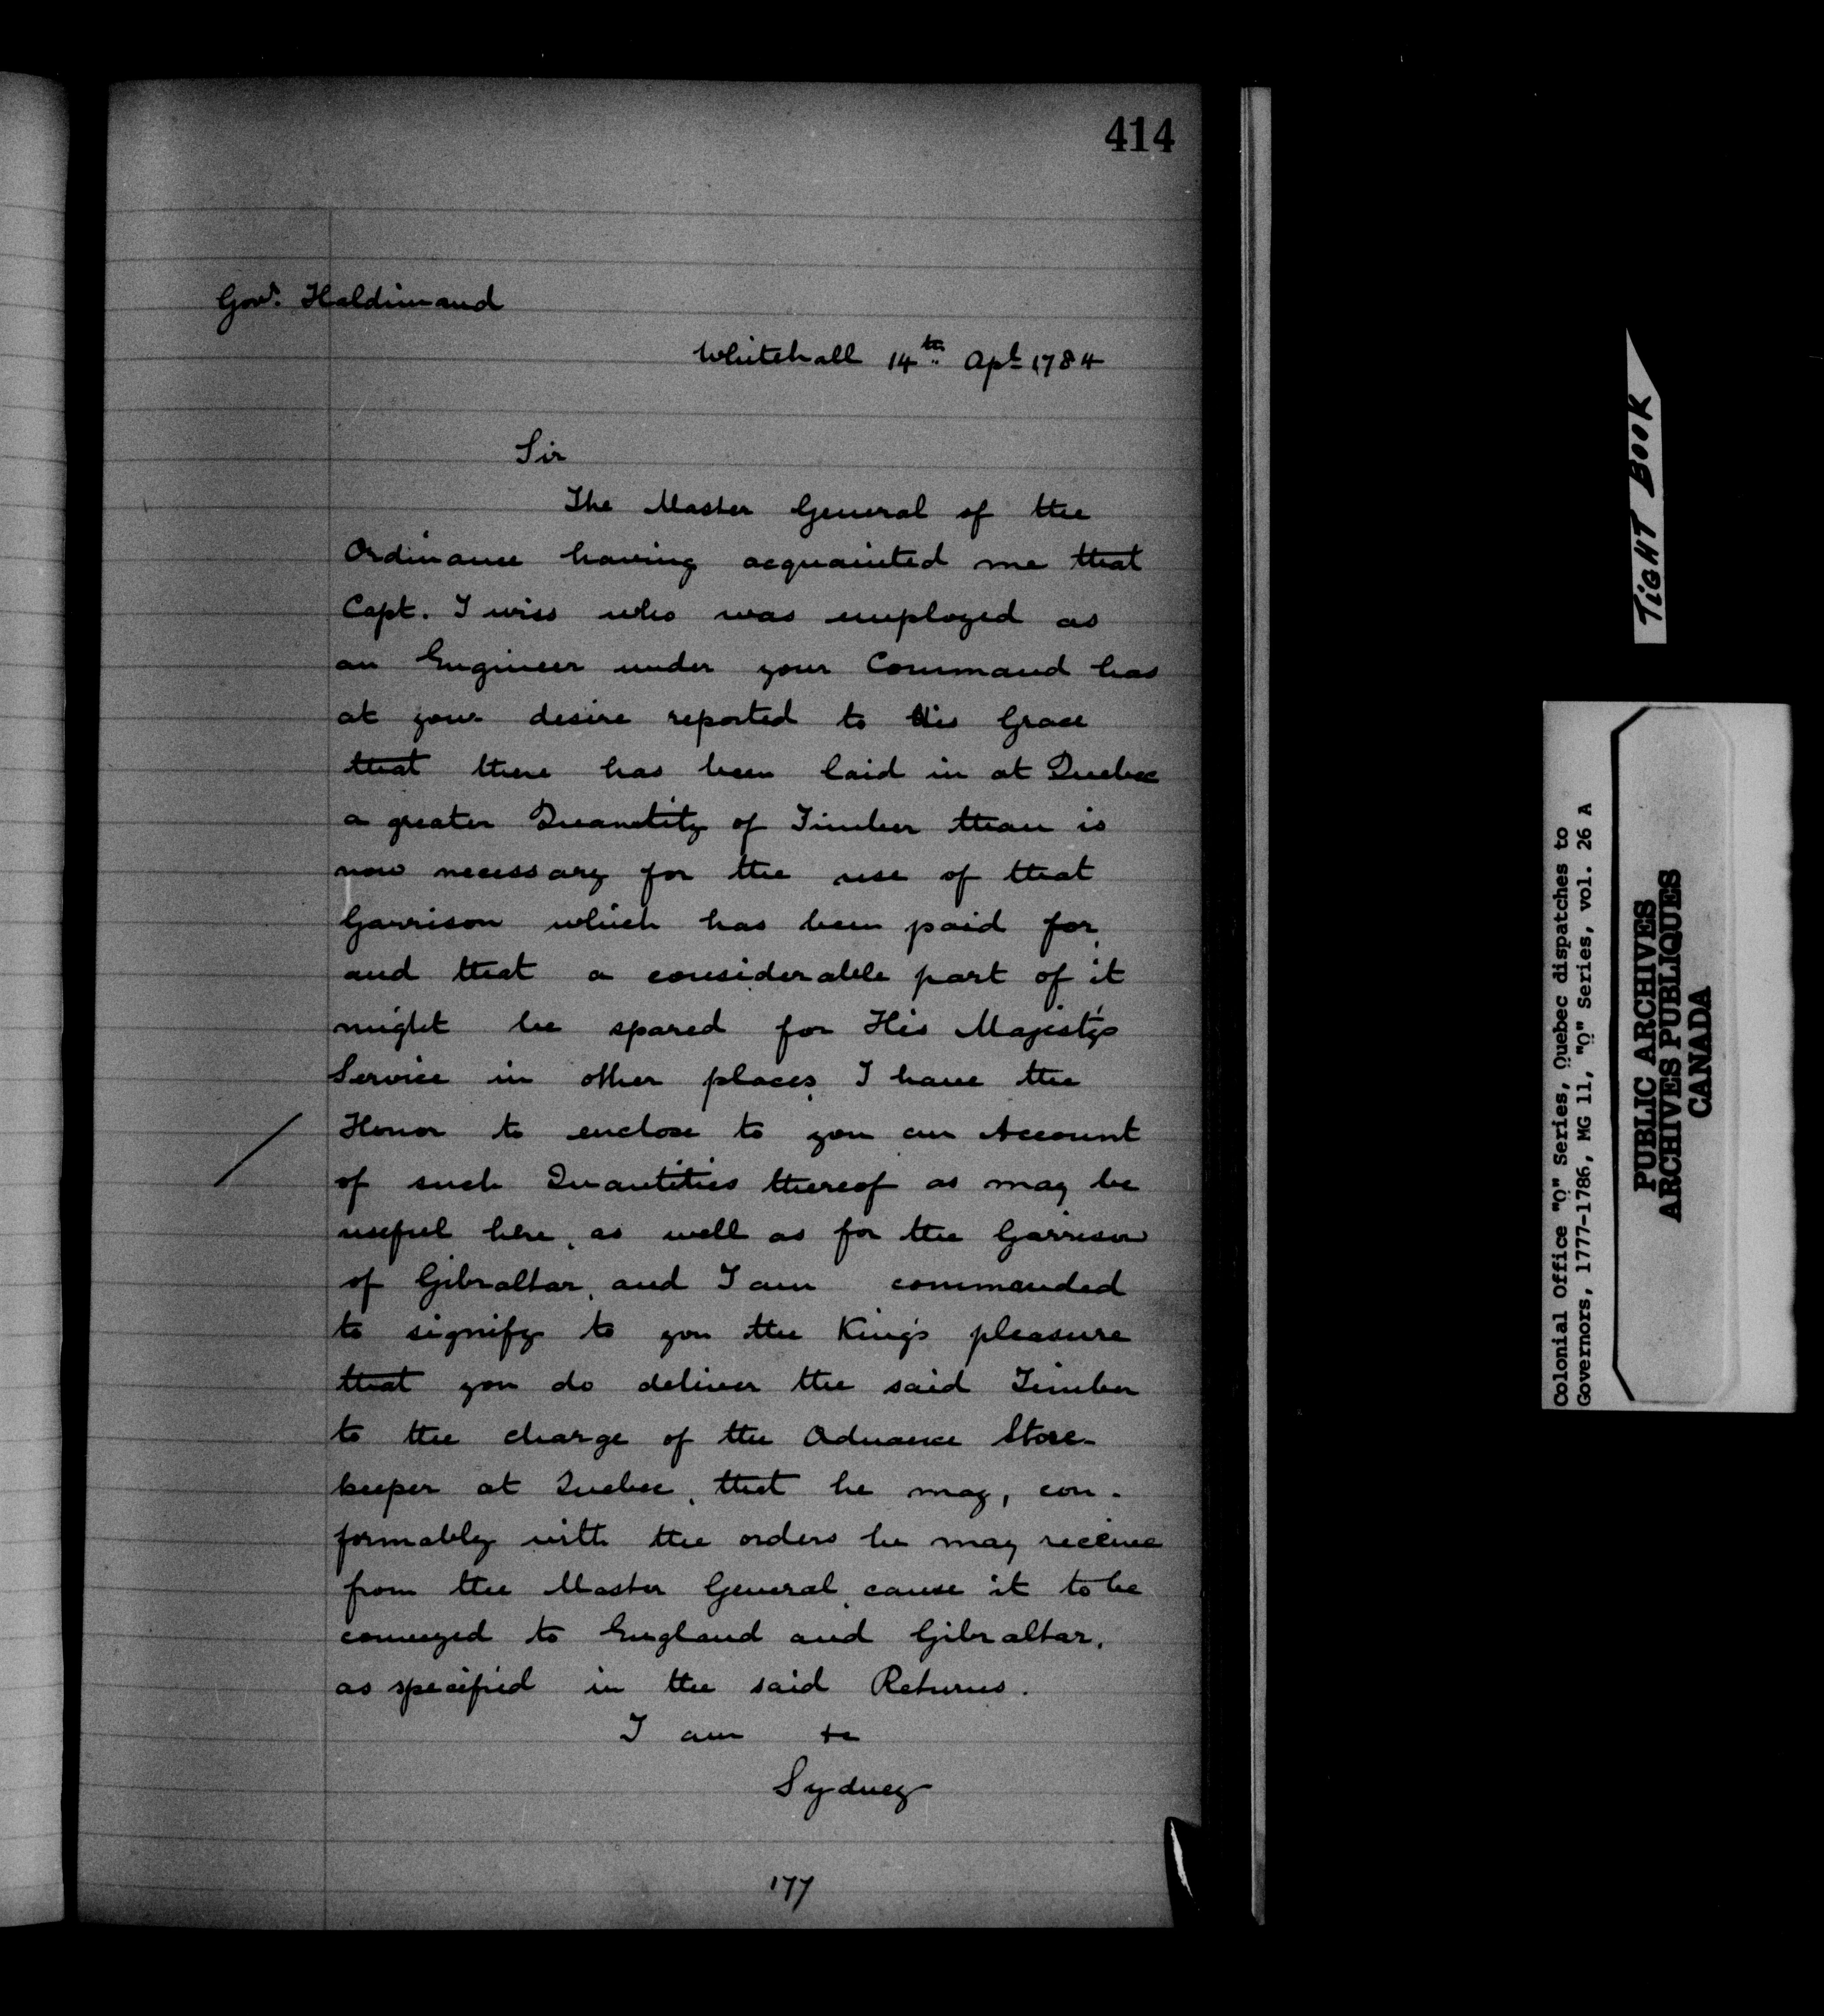 414
Govr. Haldimand
Whitehall 14th Apl 1784
Sir
The Master General of the
Ordinance having acquainted me that
Capt. Twiss who was employed as
an Engineer under your Command has
at your desire reported to His Grace
that there has been laid in at Quebec
a greater Quantity of Timber than is
now necessary for the use of that
Garrison which has been paid for,
and that a considerable part of it
might be spared for His Majesty's
Service in other places, I have the
Honor to enclose to you an Account
of such Quantities thereof as may be
useful here, as well as for the Garrison
of Gibraltar, and I am commanded
to signify to you the King's pleasure
that you do deliver the said Timber
to the charge of the Ordnance Store-
keeper at Quebec, that he may, con-
formably with the orders he may receive
from the Master General, cause it to be
conveyed to England and Gibraltar,
as specified in the said Returns.
I am &c
Sydney
177
TIGHT BOOK
Colonial Office "Q" Series, Quebec dispatches to
Governors, 1777-1786, MG 11, "Q" Series, vol. 26 A
PUBLIC ARCHIVES
ARCHIVES PUBLIQUES
CANADA